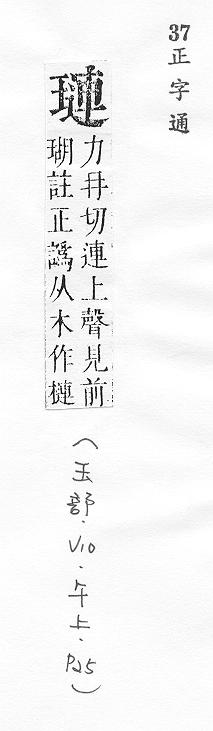 37正字通
璉
力冄切連上聲見前
瑚註正譌从木作槤
(玉部.V10.午上.P25)